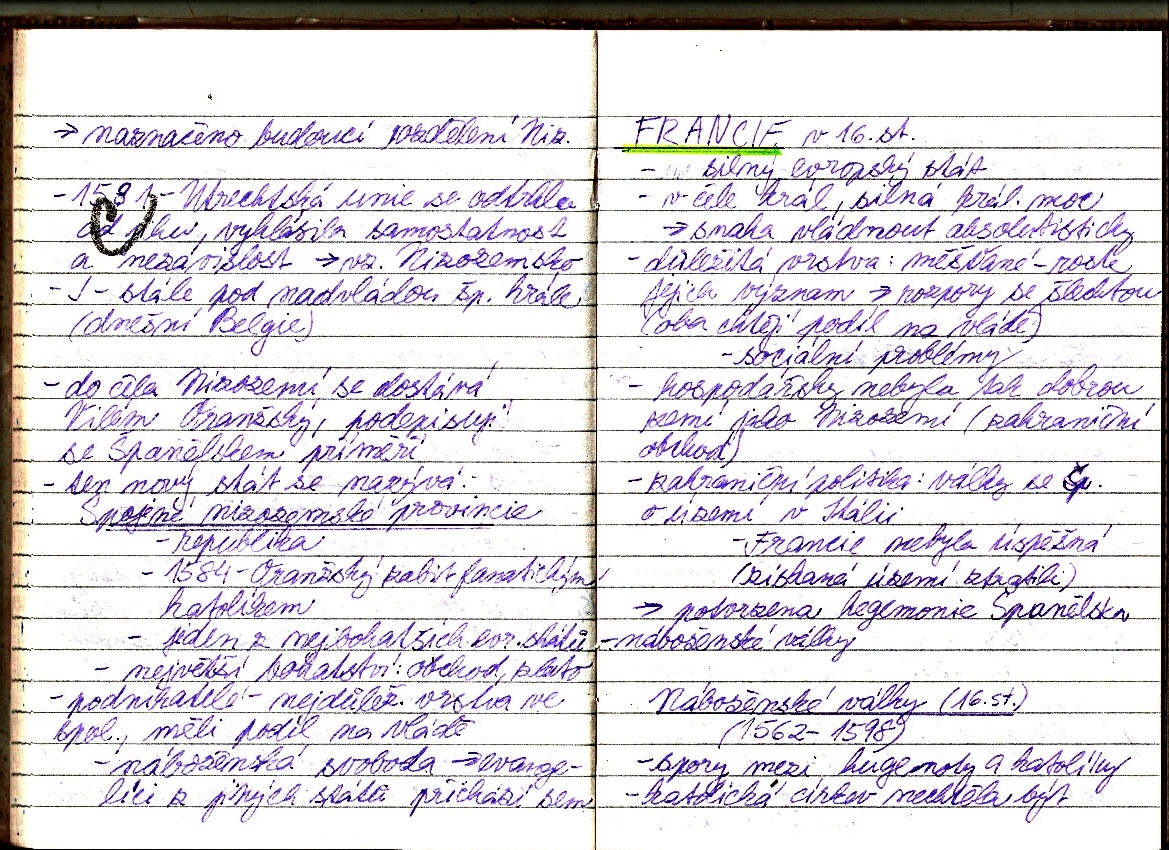 → naznačeno budoucí rozdělení Niz.
- 1581 - Utrechtská unie se odtrhla
od jihu, vyhlásila samostatnost
a nezávislost → vz. Nizozemsko
- J - stále pod nadvládou šp. krále
(dnešní Belgie)
- do čela Nizozemí se dostává
Vilém Oranžský, podepisují
se Španělskem příměří
- ten nový stát se nazývá:
Spojené nizozemské provincie
- republika
- 1584 - Oranžský zabit fanatickým
katolíkem
- jeden z nejbohatších evr. států
- největší bohatství: obchod, zlato
- podnikatelé - nejdůlež. vrstva ve
spol., měli podíl na vládě
- náboženská svoboda → evange-
líci z jiných států přichází sem
FRANCIE v 16. st.
- silný evropský stát
- v čele král, silná král. moc
→ snaha vládnout absolutisticky
- důležitá vrstva: měšťané - roste
jejich význam → rozpory se šlechtou
(oba chtějí podíl na vládě)
- sociální problémy
- hospodářsky nebyla tak dobrou
zemí jako Nizozemí (zahraniční
obchod)
- zahraniční politika: války se Šp.
o území v Itálii
- Francie nebyla úspěšná
(získaná území ztratili)
→ potvrzena hegemonie Španělska
- náboženské války
Náboženské války (16. st.)
(1562 - 1598)
- spory mezi hugenoty a katolíky
- katolická církev nechtěla být